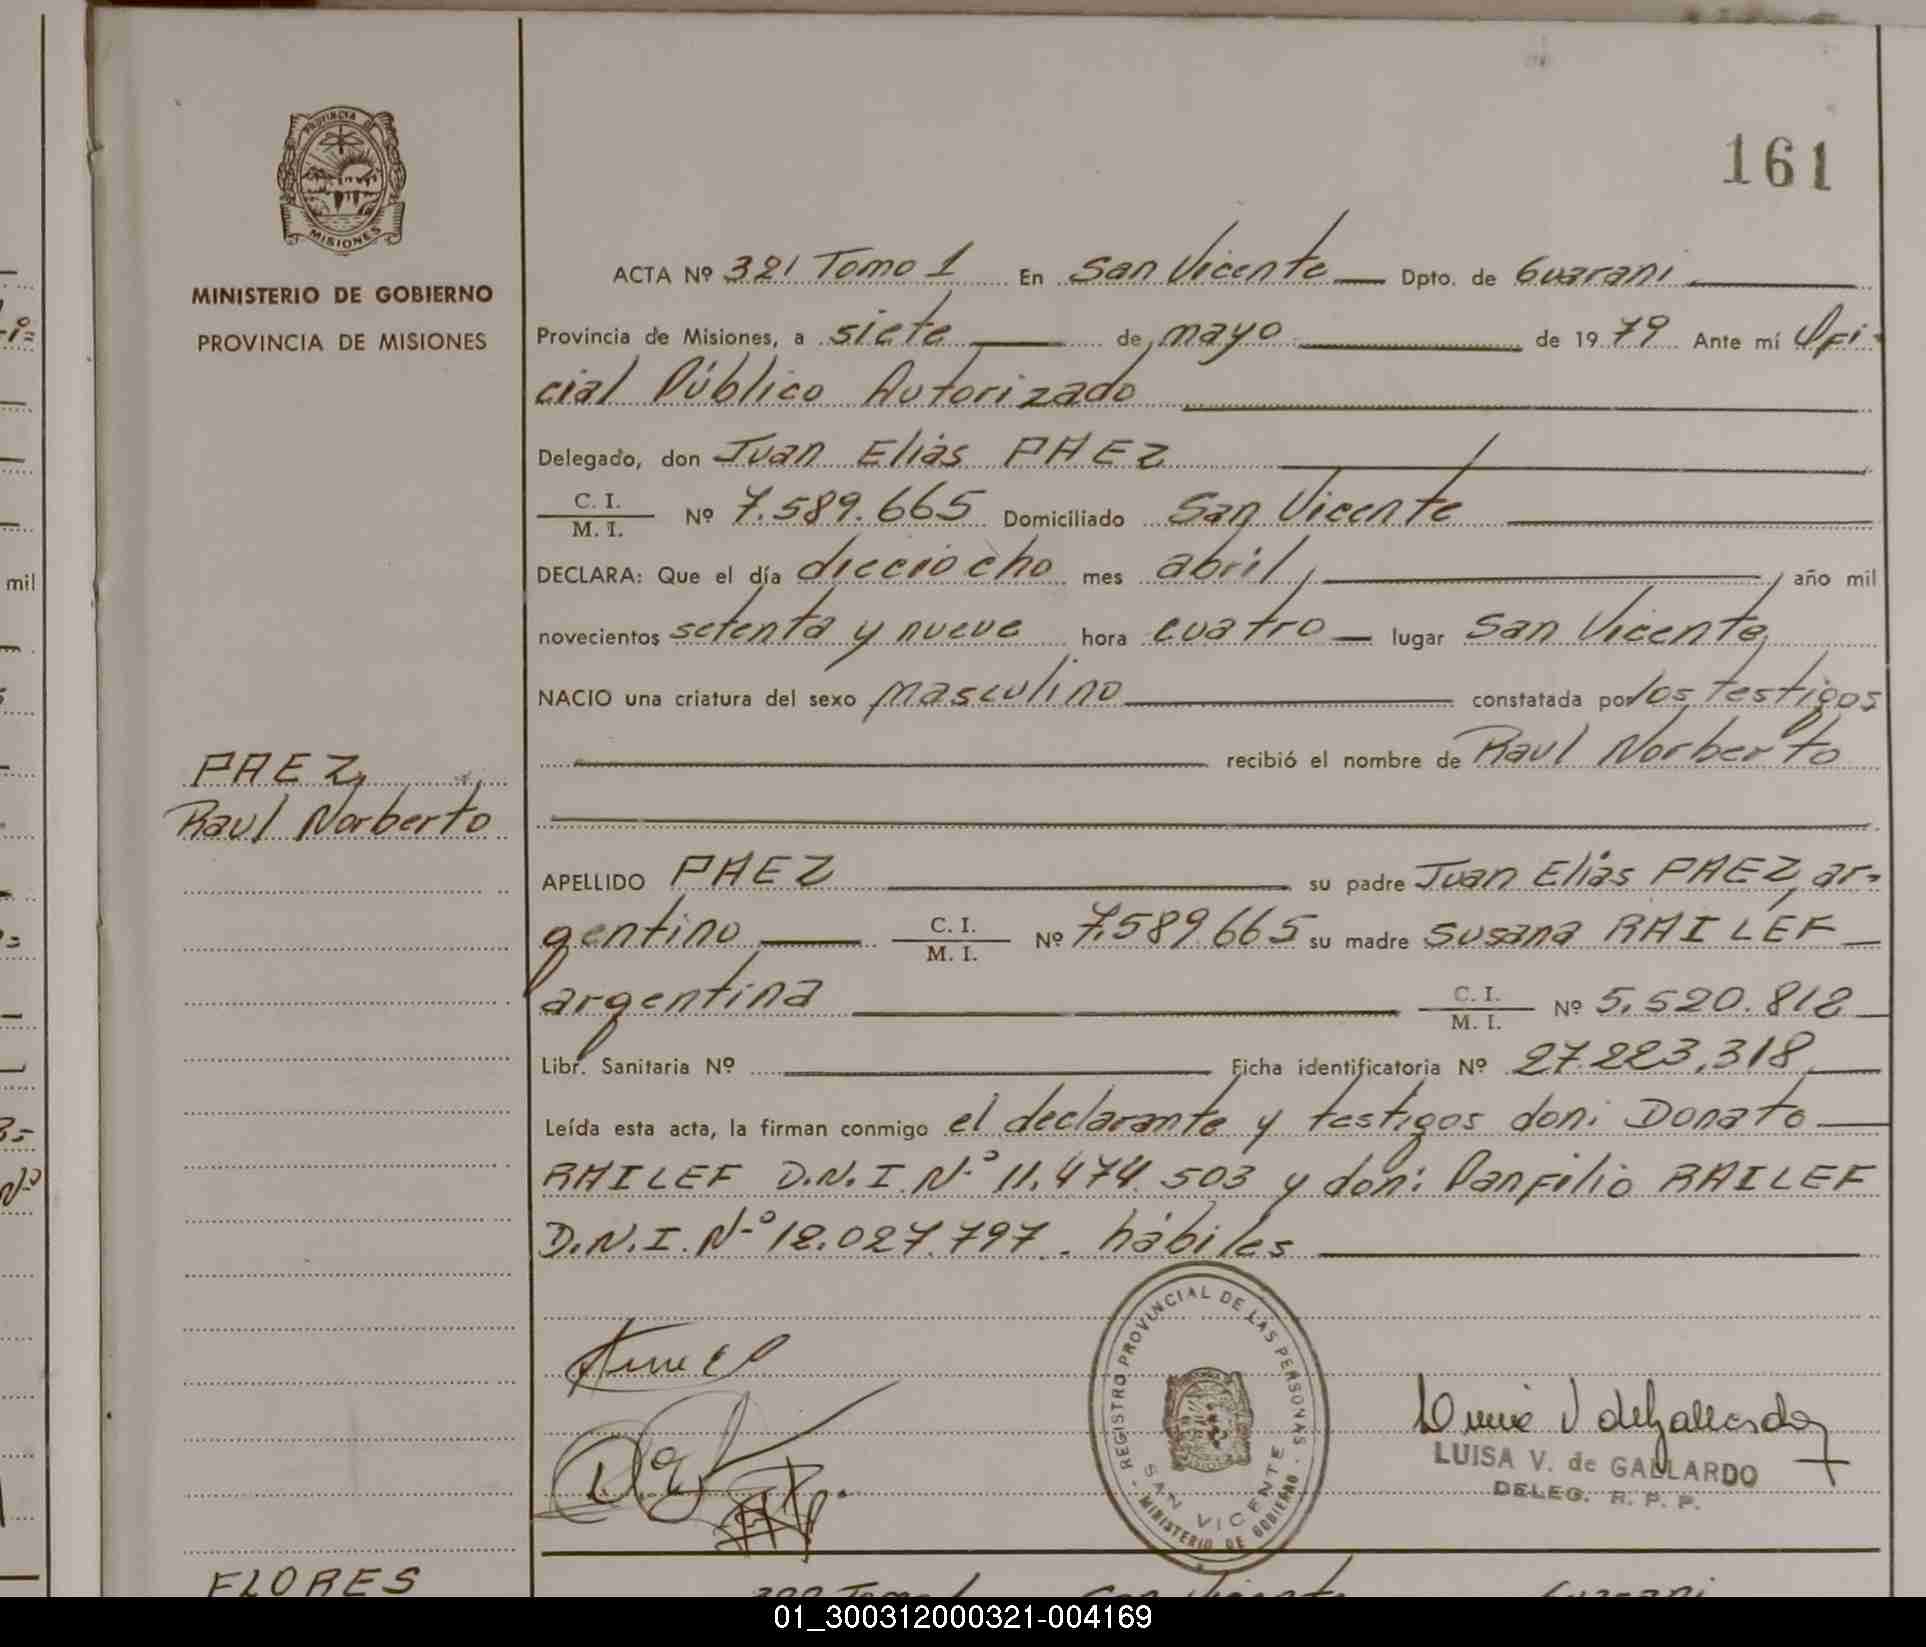 161
PROVINCIA DE
MISIONES
MINISTERIO DE GOBIERNO
PROVINCIA DE MISIONES
ACTA Nº 321 Tomo 1 En San Vicente Dpto. de Guarani
Provincia de Misiones, a siete de mayo de 1979 Ante mí Ofi-
cial Público Autorizado
Delegado, don Juan Elias PAEZ
C. I.
M. I. Nº 7.589.665 Domiciliado San Vicente
DECLARA: Que el día dieciocho mes abril, año mil
novecientos setenta y nueve hora cuatro lugar San Vicente
NACIO una criatura del sexo masculino constatada por los testigos
recibió el nombre de Raul Norberto
PAEZ
Raul Norberto
APELLIDO PAEZ su padre Juan Elias PAEZ, ar-
gentino C. I. M. I. Nº 7.589.665 su madre Susana RAILEF
argentina C. I. M. I. Nº 5.520.812
Libr. Sanitaria Nº Ficha identificatoria Nº 27.223.318
Leída esta acta, la firman conmigo el declarante y testigos don: Donato
RAILEF D.N.I. Nº 11.474.503 y don: Panfilio RAILEF
D.N.I. Nº 12.027.797. hábiles
REGISTRO PROVINCIAL DE LAS PERSONAS
SAN VICENTE
MINISTERIO DE GOBIERNO
LUISA V. de GALLARDO
DELEG. R. P. P.
FLORES
322 Tomo 1 San Vicente Guarani
mil
01_300312000321-004169